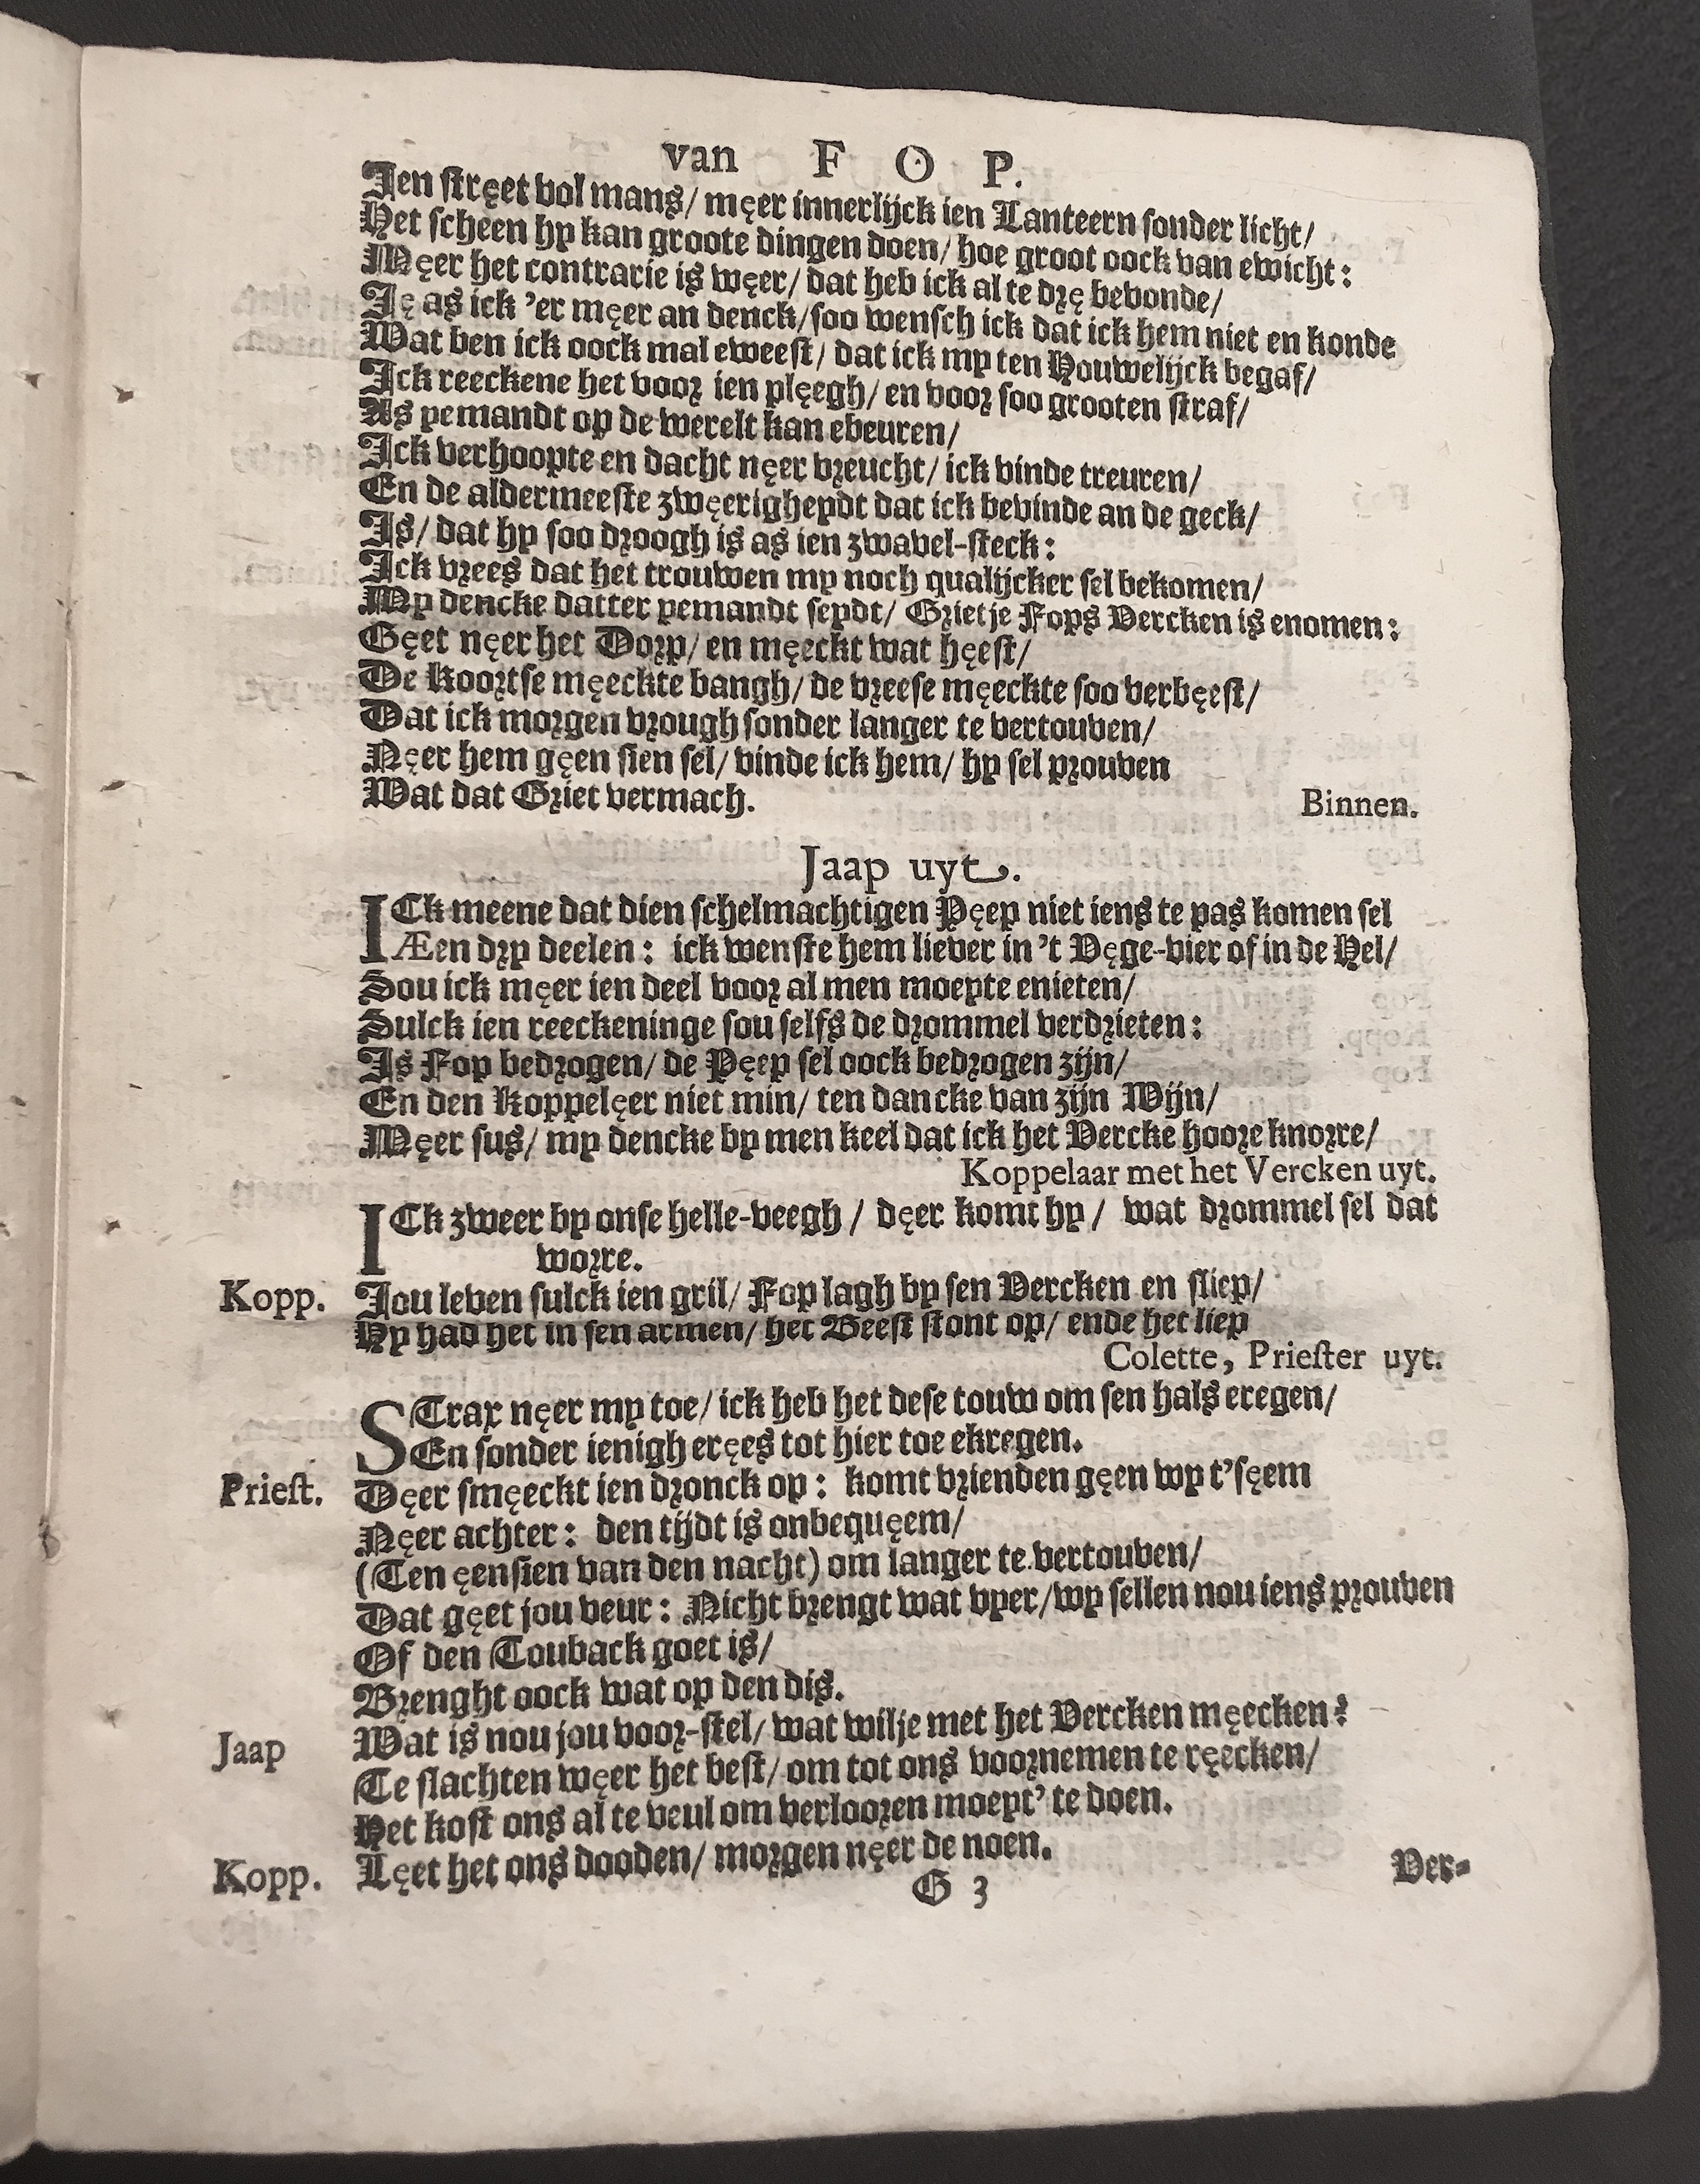 van F O P.
Ien stręet vol mans/ męer innerlijck ien Lanteern sonder licht/
Het scheen hy kan groote dingen doen/ hoe groot oock van ewicht:
Męer het contrarie is węer/ dat heb ick al te drę bevonde/
Ję as ick 'er męer an denck/ soo wensch ick dat ick hem niet en konde
Wat ben ick oock mal eweest/ dat ick my ten Houwelijck begaf/
Ick reeckene het voor ien plęegh/ en voor soo grooten straf/
As yemandt op de werelt kan ebeuren/
Ick verhoopte en dacht nęer vreucht/ ick vinde treuren/
En de aldermeeste zwęerigheydt dat ick bevinde an de geck/
Is/ dat hy soo droogh is as ien zwavel-steck:
Ick vrees dat het trouwen my noch qualijcker sel bekomen/
My dencke datter yemandt seydt/ Grietje Fops Vercken is enomen:
Gęet nęer het Dorp/ en męeckt wat hęest/
De Koortse męeckte bangh/ de vreese męeckte soo verbęest/
Dat ick morgen vrough sonder langer te vertouven/
Nęer hem gęen sien sel/ vinde ick hem/ hy sel prouven
Wat dat Griet vermach.
Binnen.
Jaap uyt.
ICk meene dat dien schelmachtigen Pęep niet iens te pas komen sel
Æen dry deelen: ick wenste hem liever in 't Vęge-vier of in de Hel/
Sou ick męer ien deel voor al men moeyte enieten/
Sulck ien reeckeninge sou selfs de drommel verdrieten:
Is Fop bedrogen/ de Pęep sel oock bedrogen zijn/
En den Koppelęer niet min/ ten dancke van zijn Wijn/
Męer sus/ my dencke by men keel dat ick het Vercke hoore knorre/
Koppelaar met het Vercken uyt.
ICk zweer by onse helle-veegh / dęer komt hy / wat drommel sel dat
worre.
Kopp. Jou leven sulck ien gril/ Fop lagh by sen Vercken en sliep/
Hy had het in sen armen/ het Beest stont op/ ende het liep
Colette, Priester uyt.
STrax nęer my toe/ ick heb het dese touw om sen hals eregen/
En sonder ienigh eręes tot hier toe ekregen.
Priest. Dęer smęeckt ien dronck op: komt vrienden gęen wy t'sęem
Nęer achter: den tijdt is onbequęem/
(Ten ęensien van den nacht) om langer te vertouven/
Dat gęet jou veur: Nicht brengt wat vyer/ wy sellen nou iens prouven
Of den Touback goet is/
Brenght oock wat op den dis.
Jaap Wat is nou jou voor-stel/ wat wilje met het Vercken męecken?
Te slachten węer het best/ om tot ons voornemen te ręecken/
Het kost ons al te veul om verlooren moeyt' te doen.
Kopp. Lęet het ons dooden/ morgen nęer de noen.
G 3 Ver-